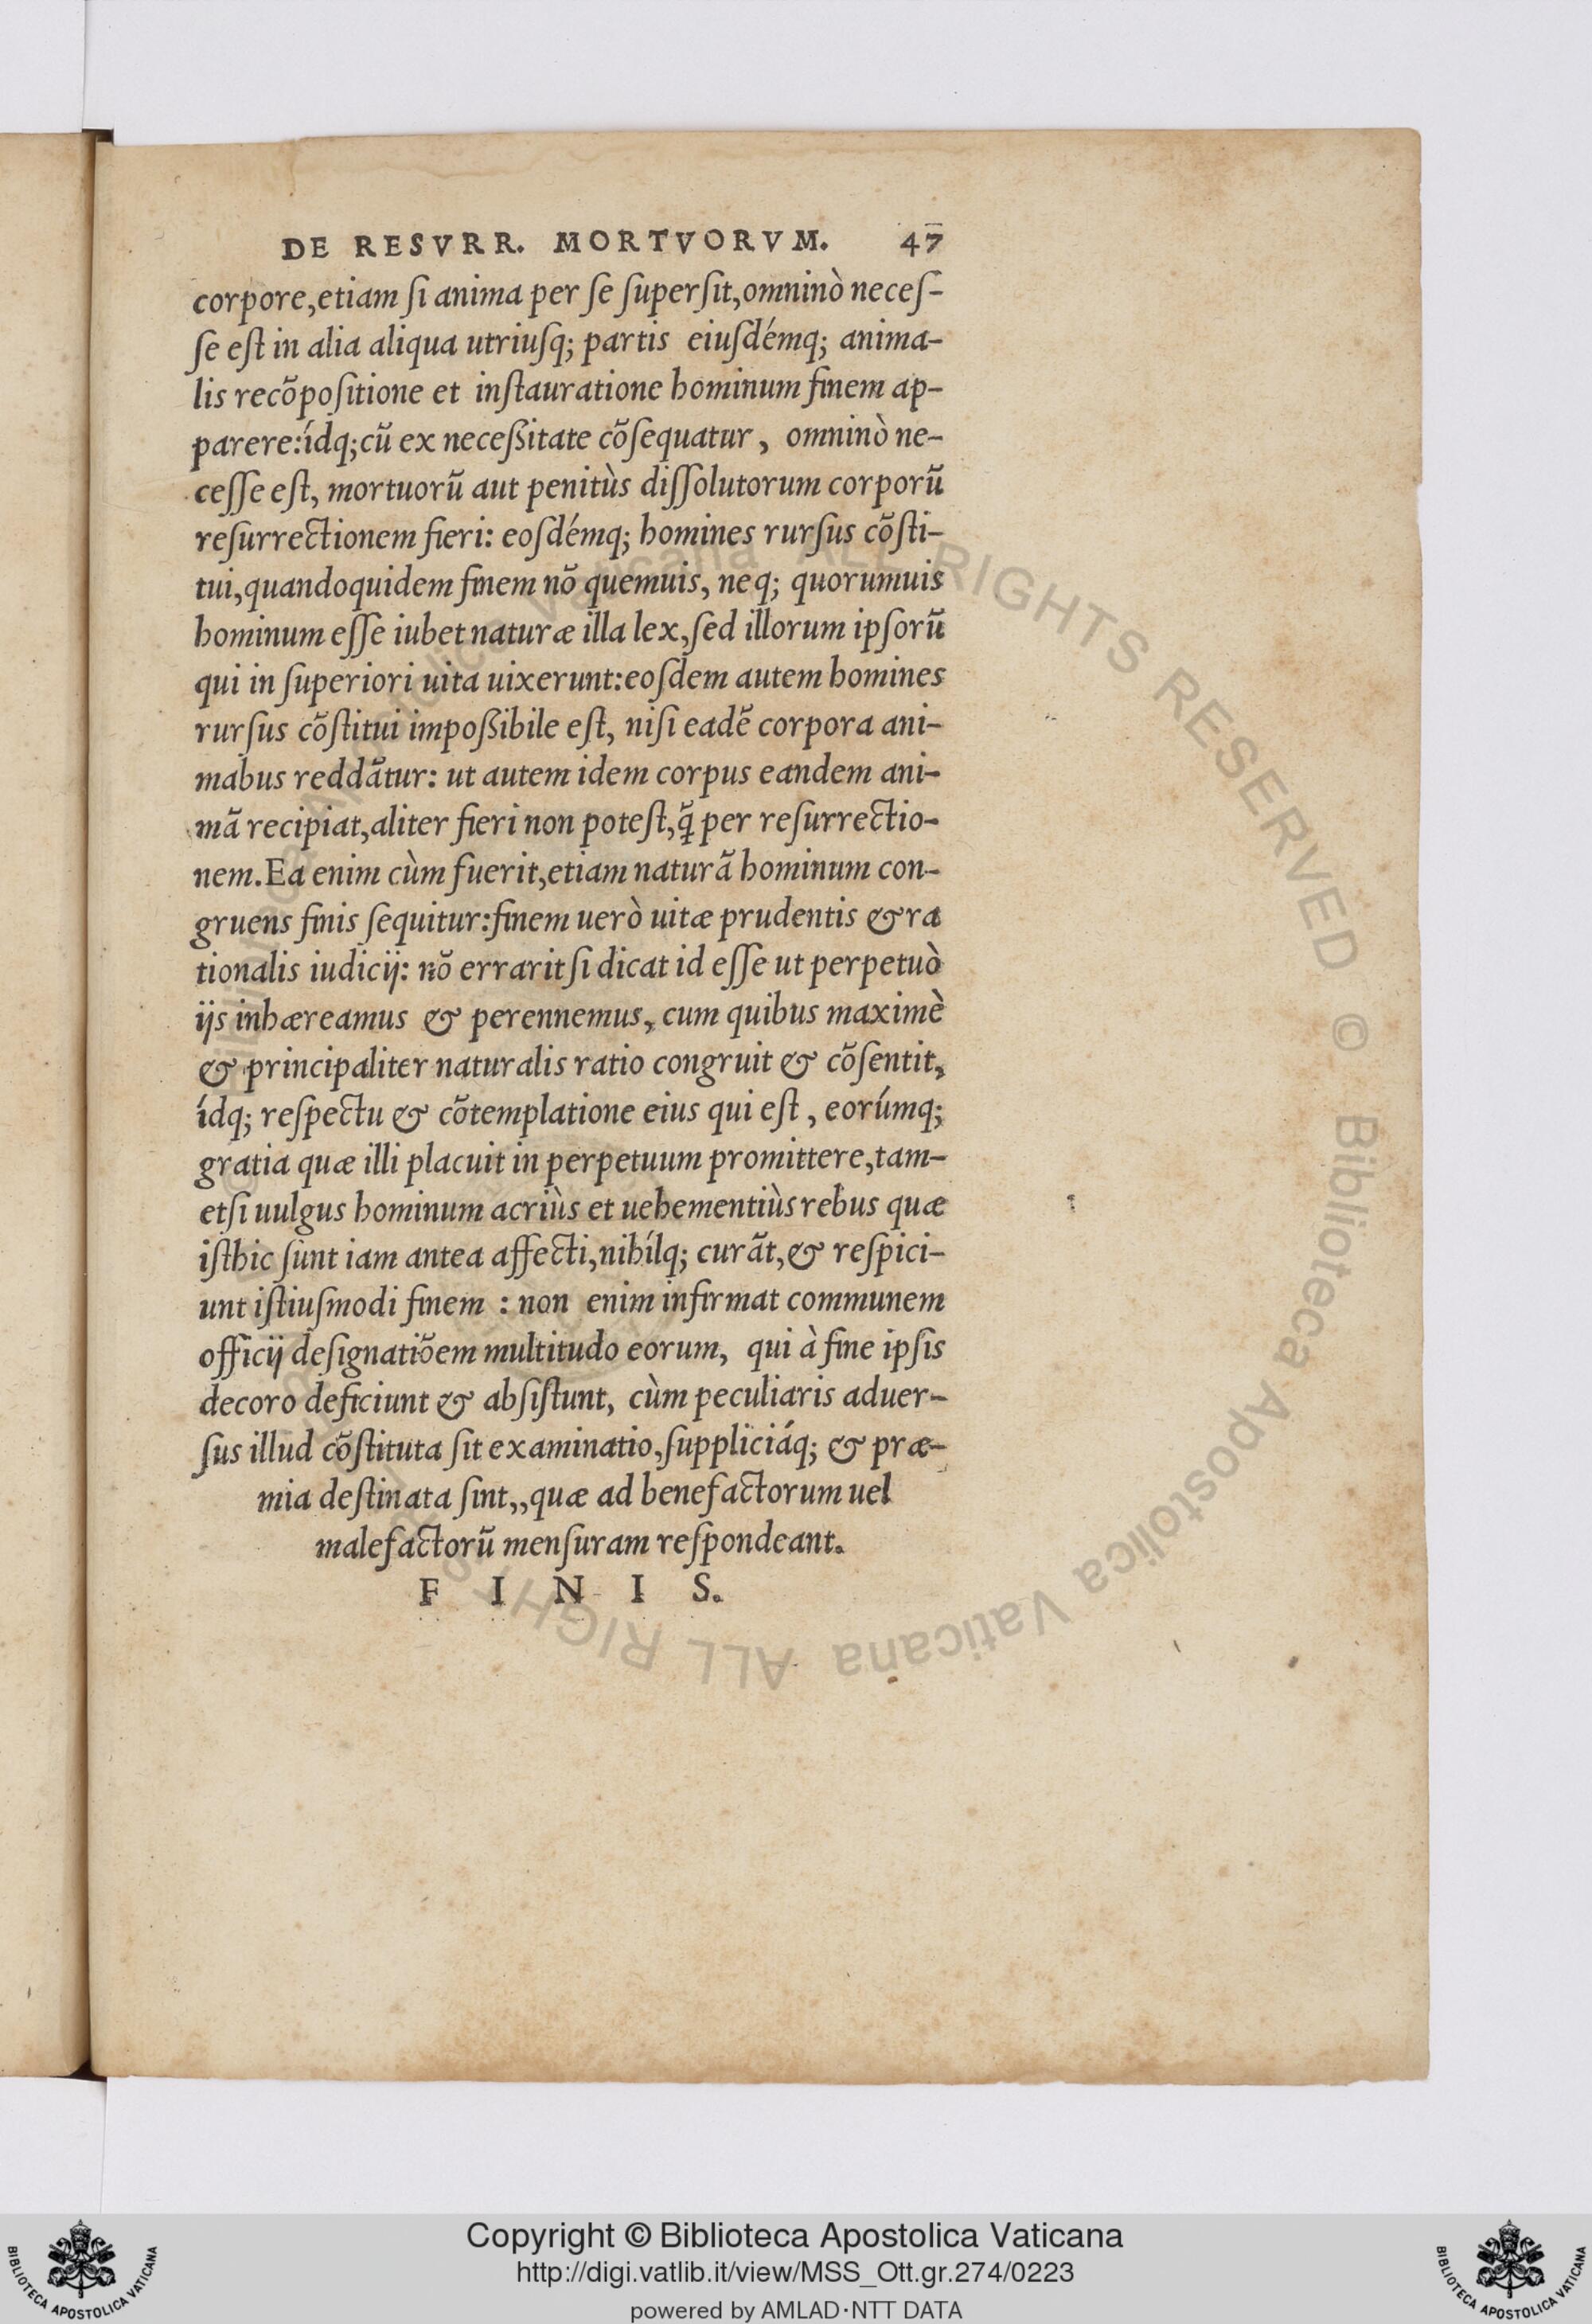 DE RESVRR. MORTVORVM. 47
corpore,etiam ſi anima per ſe ſuperſit,omninò neceſ-
ſe eſt in alia aliqua utriuſq; partis eiuſdémq; anima-
lis recõpoſitione et inſtauratione hominum finem ap-
parere:ídq;cũ ex neceßitate cõſequatur, omninò ne-
ceſſe eſt, mortuorũ aut penitùs diſſolutorum corporũ
reſurrectionem fieri: eoſdémq; homines rurſus cõſti-
tui,quandoquidem finem nõ quemuis, neq; quorumuis
hominum eſſe iubet naturæ illa lex,ſed illorum ipſorũ
qui in ſuperiori uita uixerunt:eoſdem autem homines
rurſus cõſtitui impoßibile eſt, niſi eadẽ corpora ani-
mabus reddãtur: ut autem idem corpus eandem ani-
mã recipiat,aliter fieri non poteſt,q̃ per reſurrectio-
nem.Ea enim cùm fuerit,etiam naturã hominum con-
gruens finis ſequitur:finem uerò uitæ prudentis & ra
tionalis iudicij: nõ errarit ſi dicat id eſſe ut perpetuò
ijs inhæreamus & perennemus, cum quibus maximè
& principaliter naturalis ratio congruit & cõſentit,
ídq; reſpectu & cõtemplatione eius qui eſt, eorúmq;
gratia quæ illi placuit in perpetuum promittere,tam-
etſi uulgus hominum acriùs et uehementiùs rebus quæ
iſthic ſunt iam antea affecti,nihílq; curãt,& reſpici-
unt iſtiuſmodi finem : non enim infirmat communem
officij deſignatiõem multitudo eorum, qui à fine ipſis
decoro deficiunt & abſiſtunt, cùm peculiaris aduer-
ſus illud cõſtituta ſit examinatio,ſuppliciáq; & præ-
mia deſtinata ſint,,quæ ad benefactorum uel
malefactorũ menſuram reſpondeant.
F I N I S.
Copyright © Biblioteca Apostolica Vaticana
http://digi.vatlib.it/view/MSS_Ott.gr.274/0223
powered by AMLAD·NTT DATA
BIBLIOTECA APOSTOLICA VATICANA
BIBLIOTECA APOSTOLICA VATICANA
ALL RIGHTS RESERVED © Biblioteca Apostolica Vaticana ALL RIGHT